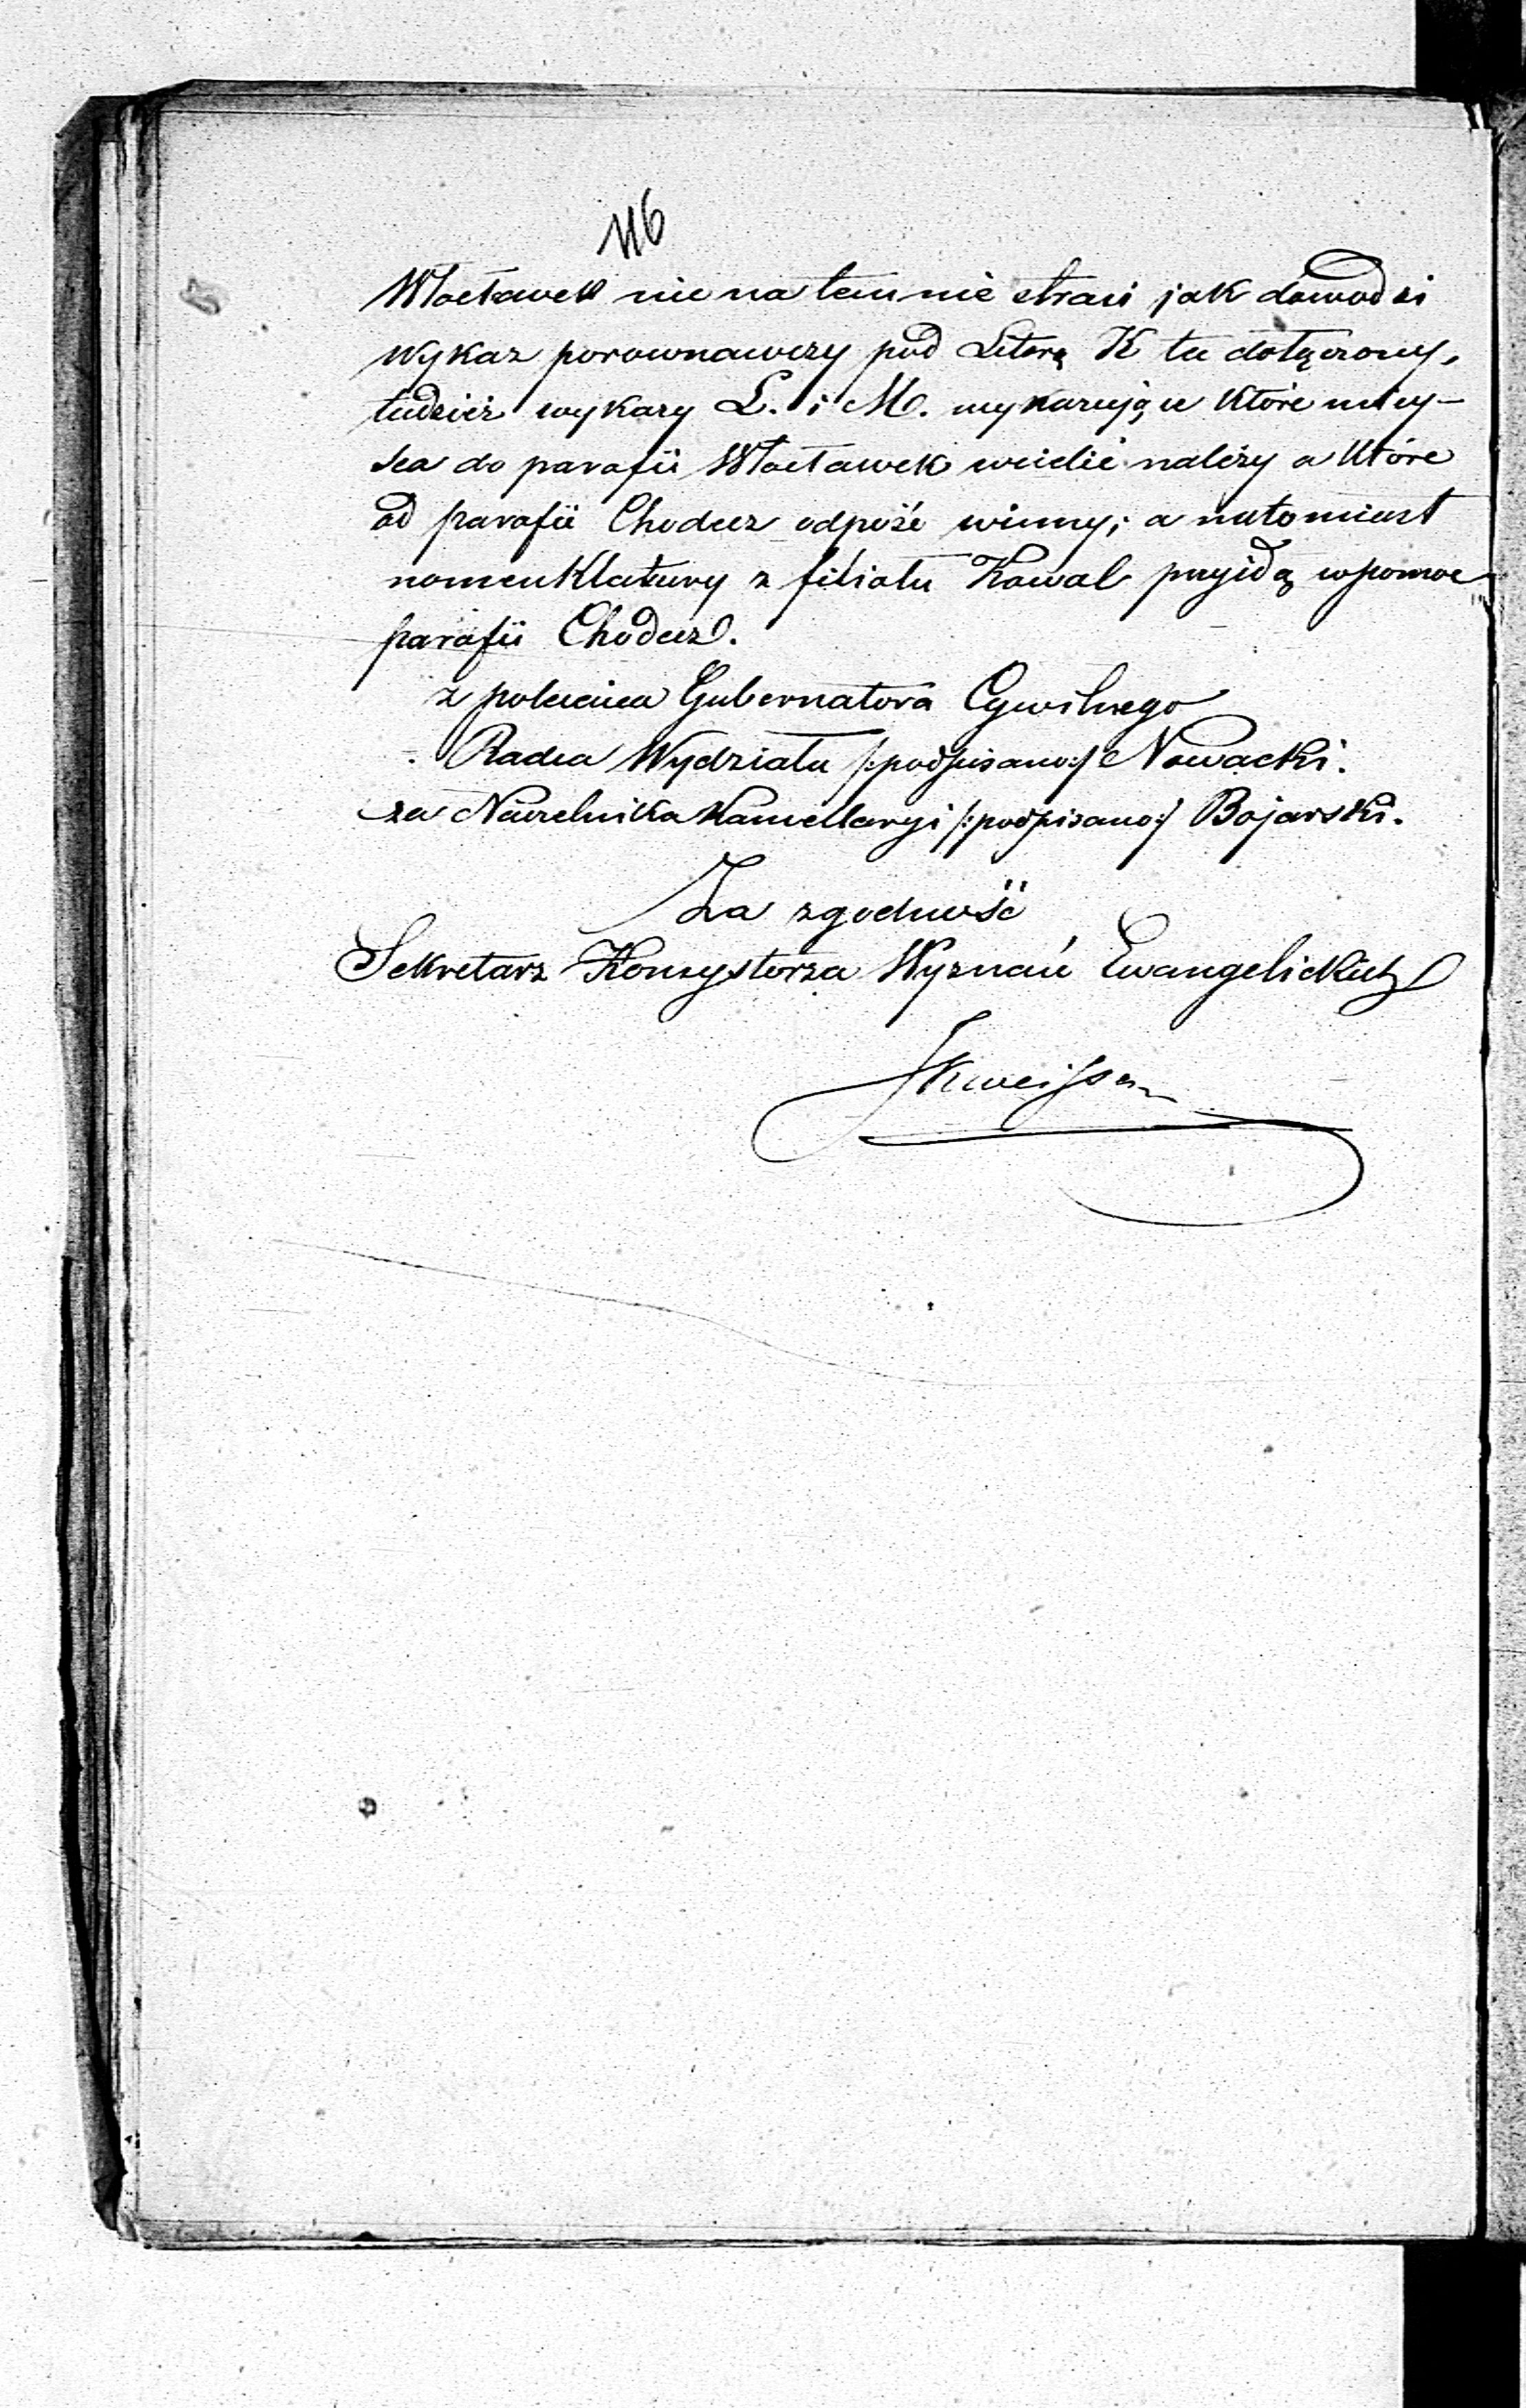 116
Włocławek nic na tem nie straci jak dowodzi
wykaz porownawczy pod Literą K tu dołączony,
tudzież wykazy L. i M. wykazujące które miey-
sca do parafii Włocławek wcielić należy a które
od parafii Chodecz odpaść winny; a natomiast
nomenklatury z filiału Kowal przyidą w pomoc
parafii Chodecz.
z polecenia Gubernatora Cywilnego
Radca Wydziału /:podpisano:/ Nowacki.
za Naczelnika Kancellaryi /:podpisano:/ Bojarski.
Za zgodność
Sekretarz Konsystorza Wyznań Ewangelickich